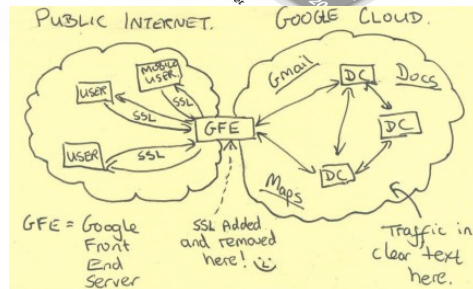 PUBLIC INTERNET.
GOOGLE CLOUD.
MOBILE
USER
USER
SSL
SSL
USER
SSL
GFE
GMail
DC
Docs
DC
DC
Maps
GFE = Google
Front
End
Server
SSL Added
and removed
here!
Traffic in
clear text
here.